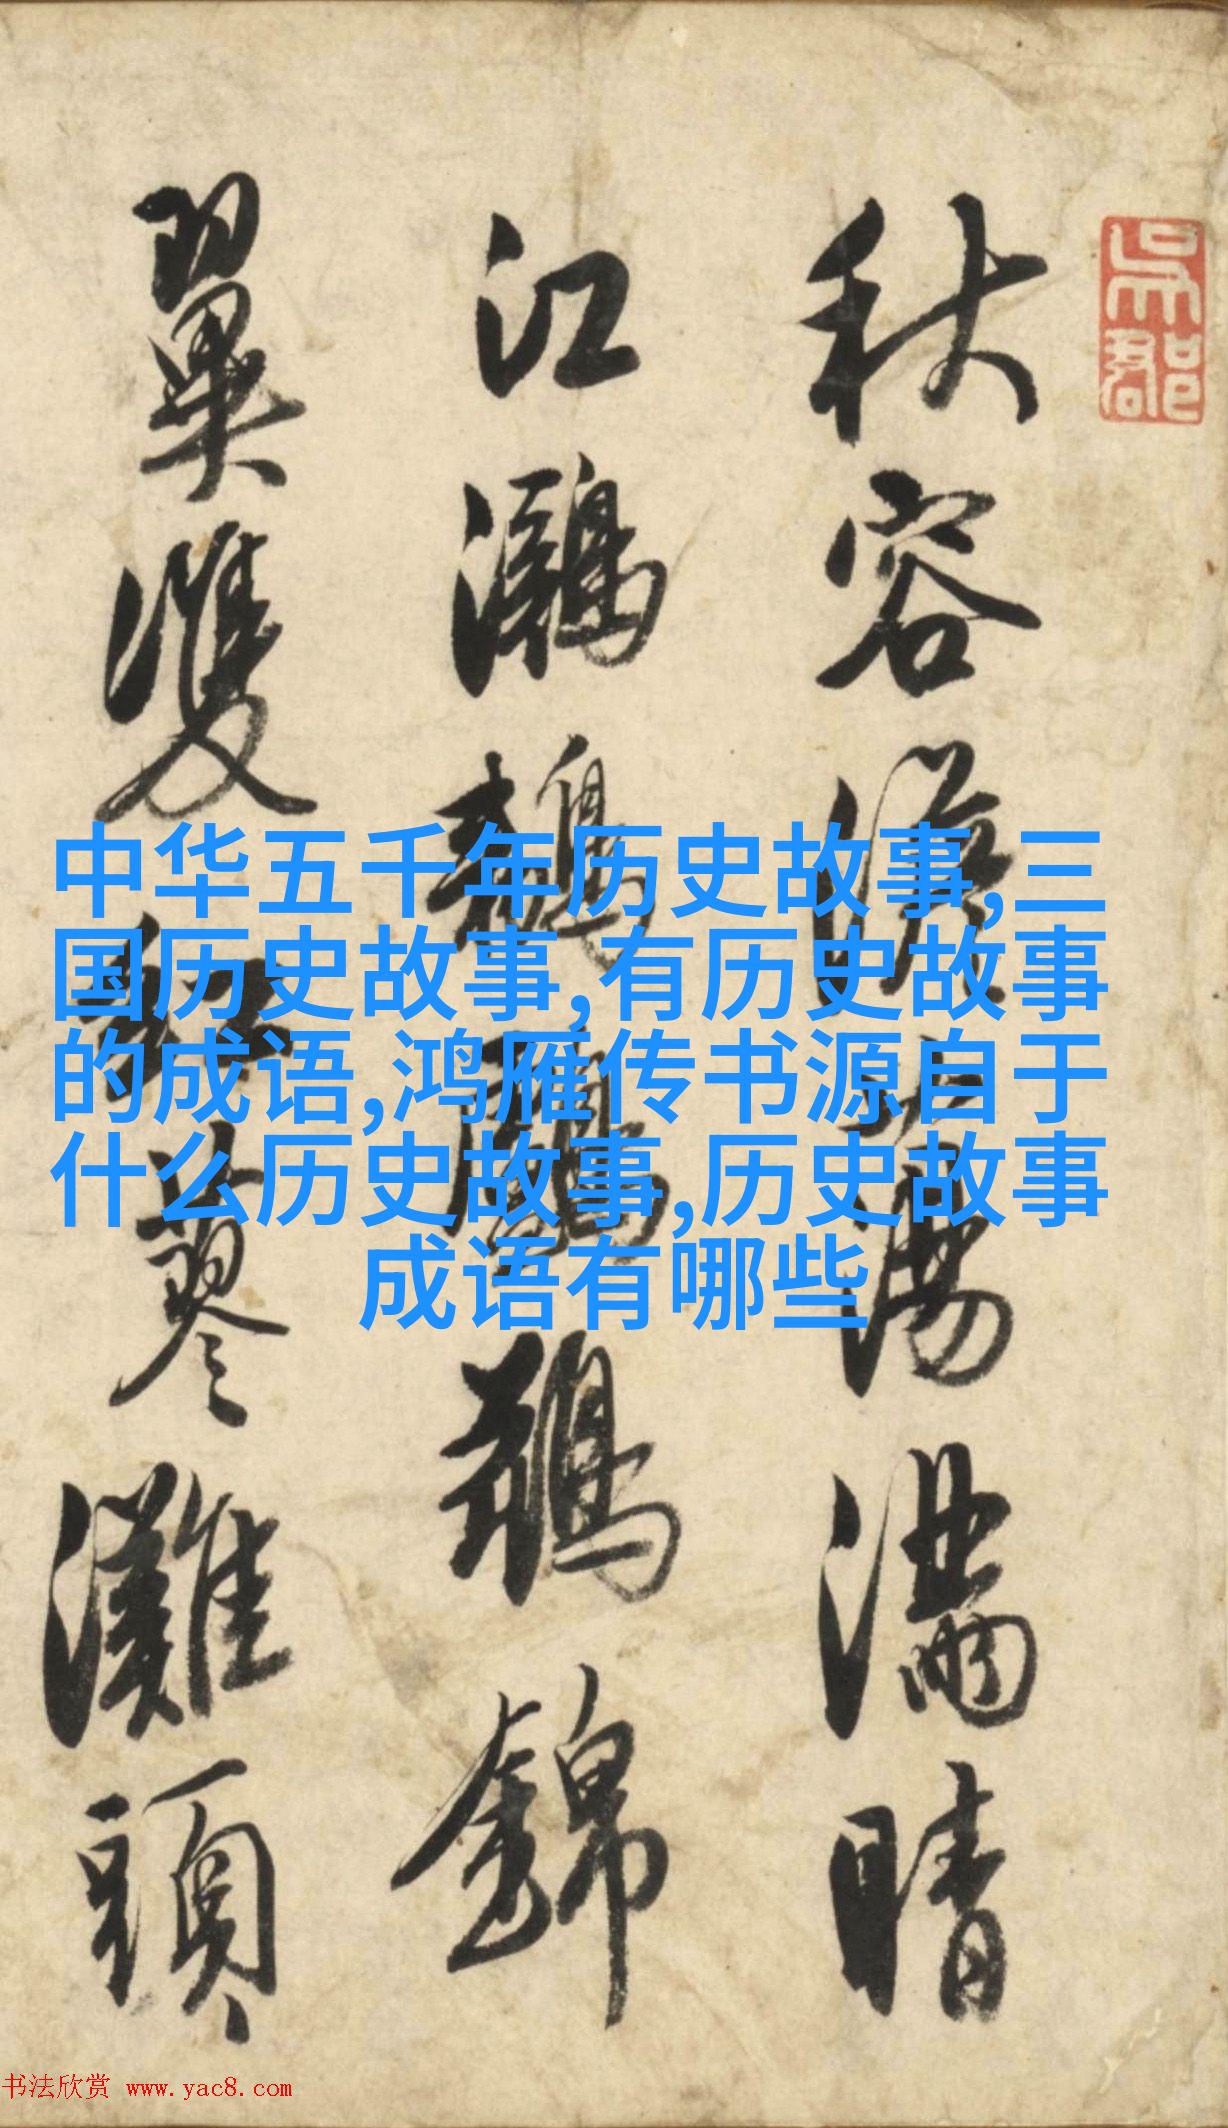 吳郡
秋容淡蕩滿晴
江鸂鶒鸕鶿錦
翼雙紅蓼灘頭
中华五千年历史故事,三
国历史故事,有历史故事
的成语,鸿雁传书源自于
什么历史故事,历史故事
成语有哪些
书法欣赏 www.yac8.com